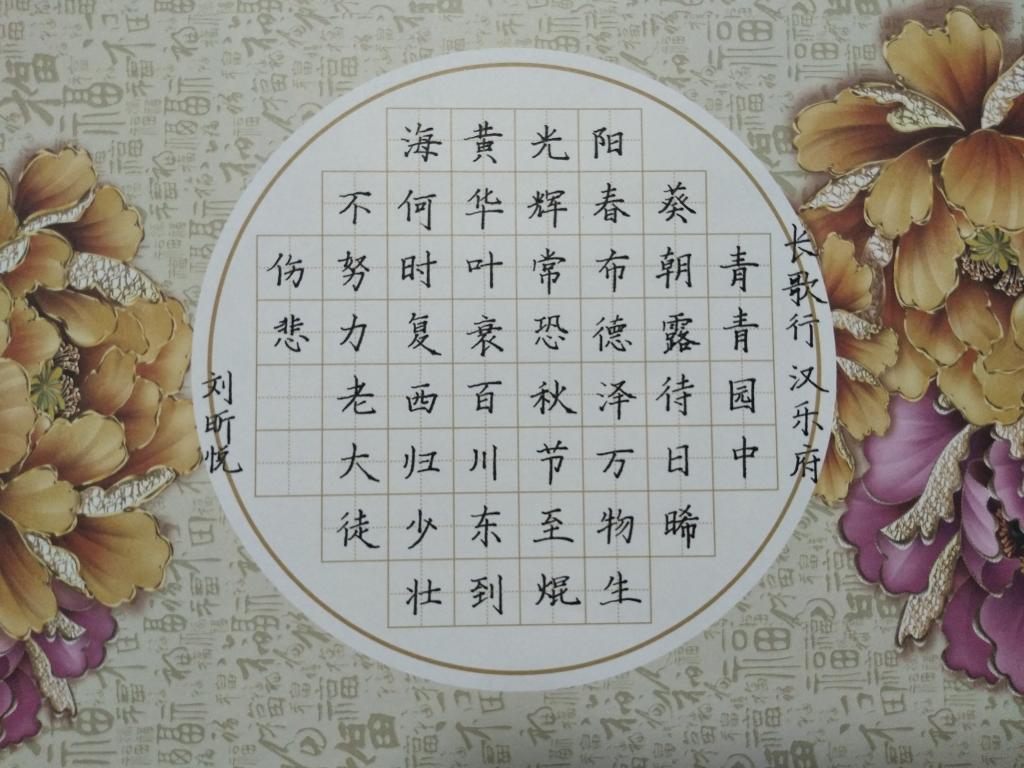 长歌行 汉乐府
青青园中
葵朝露待日晞
阳春布德泽万物生
光辉常恐秋节至焜
黄华叶衰百川东到
海何时复西归少壮
不努力老大徒
伤悲
刘昕悦